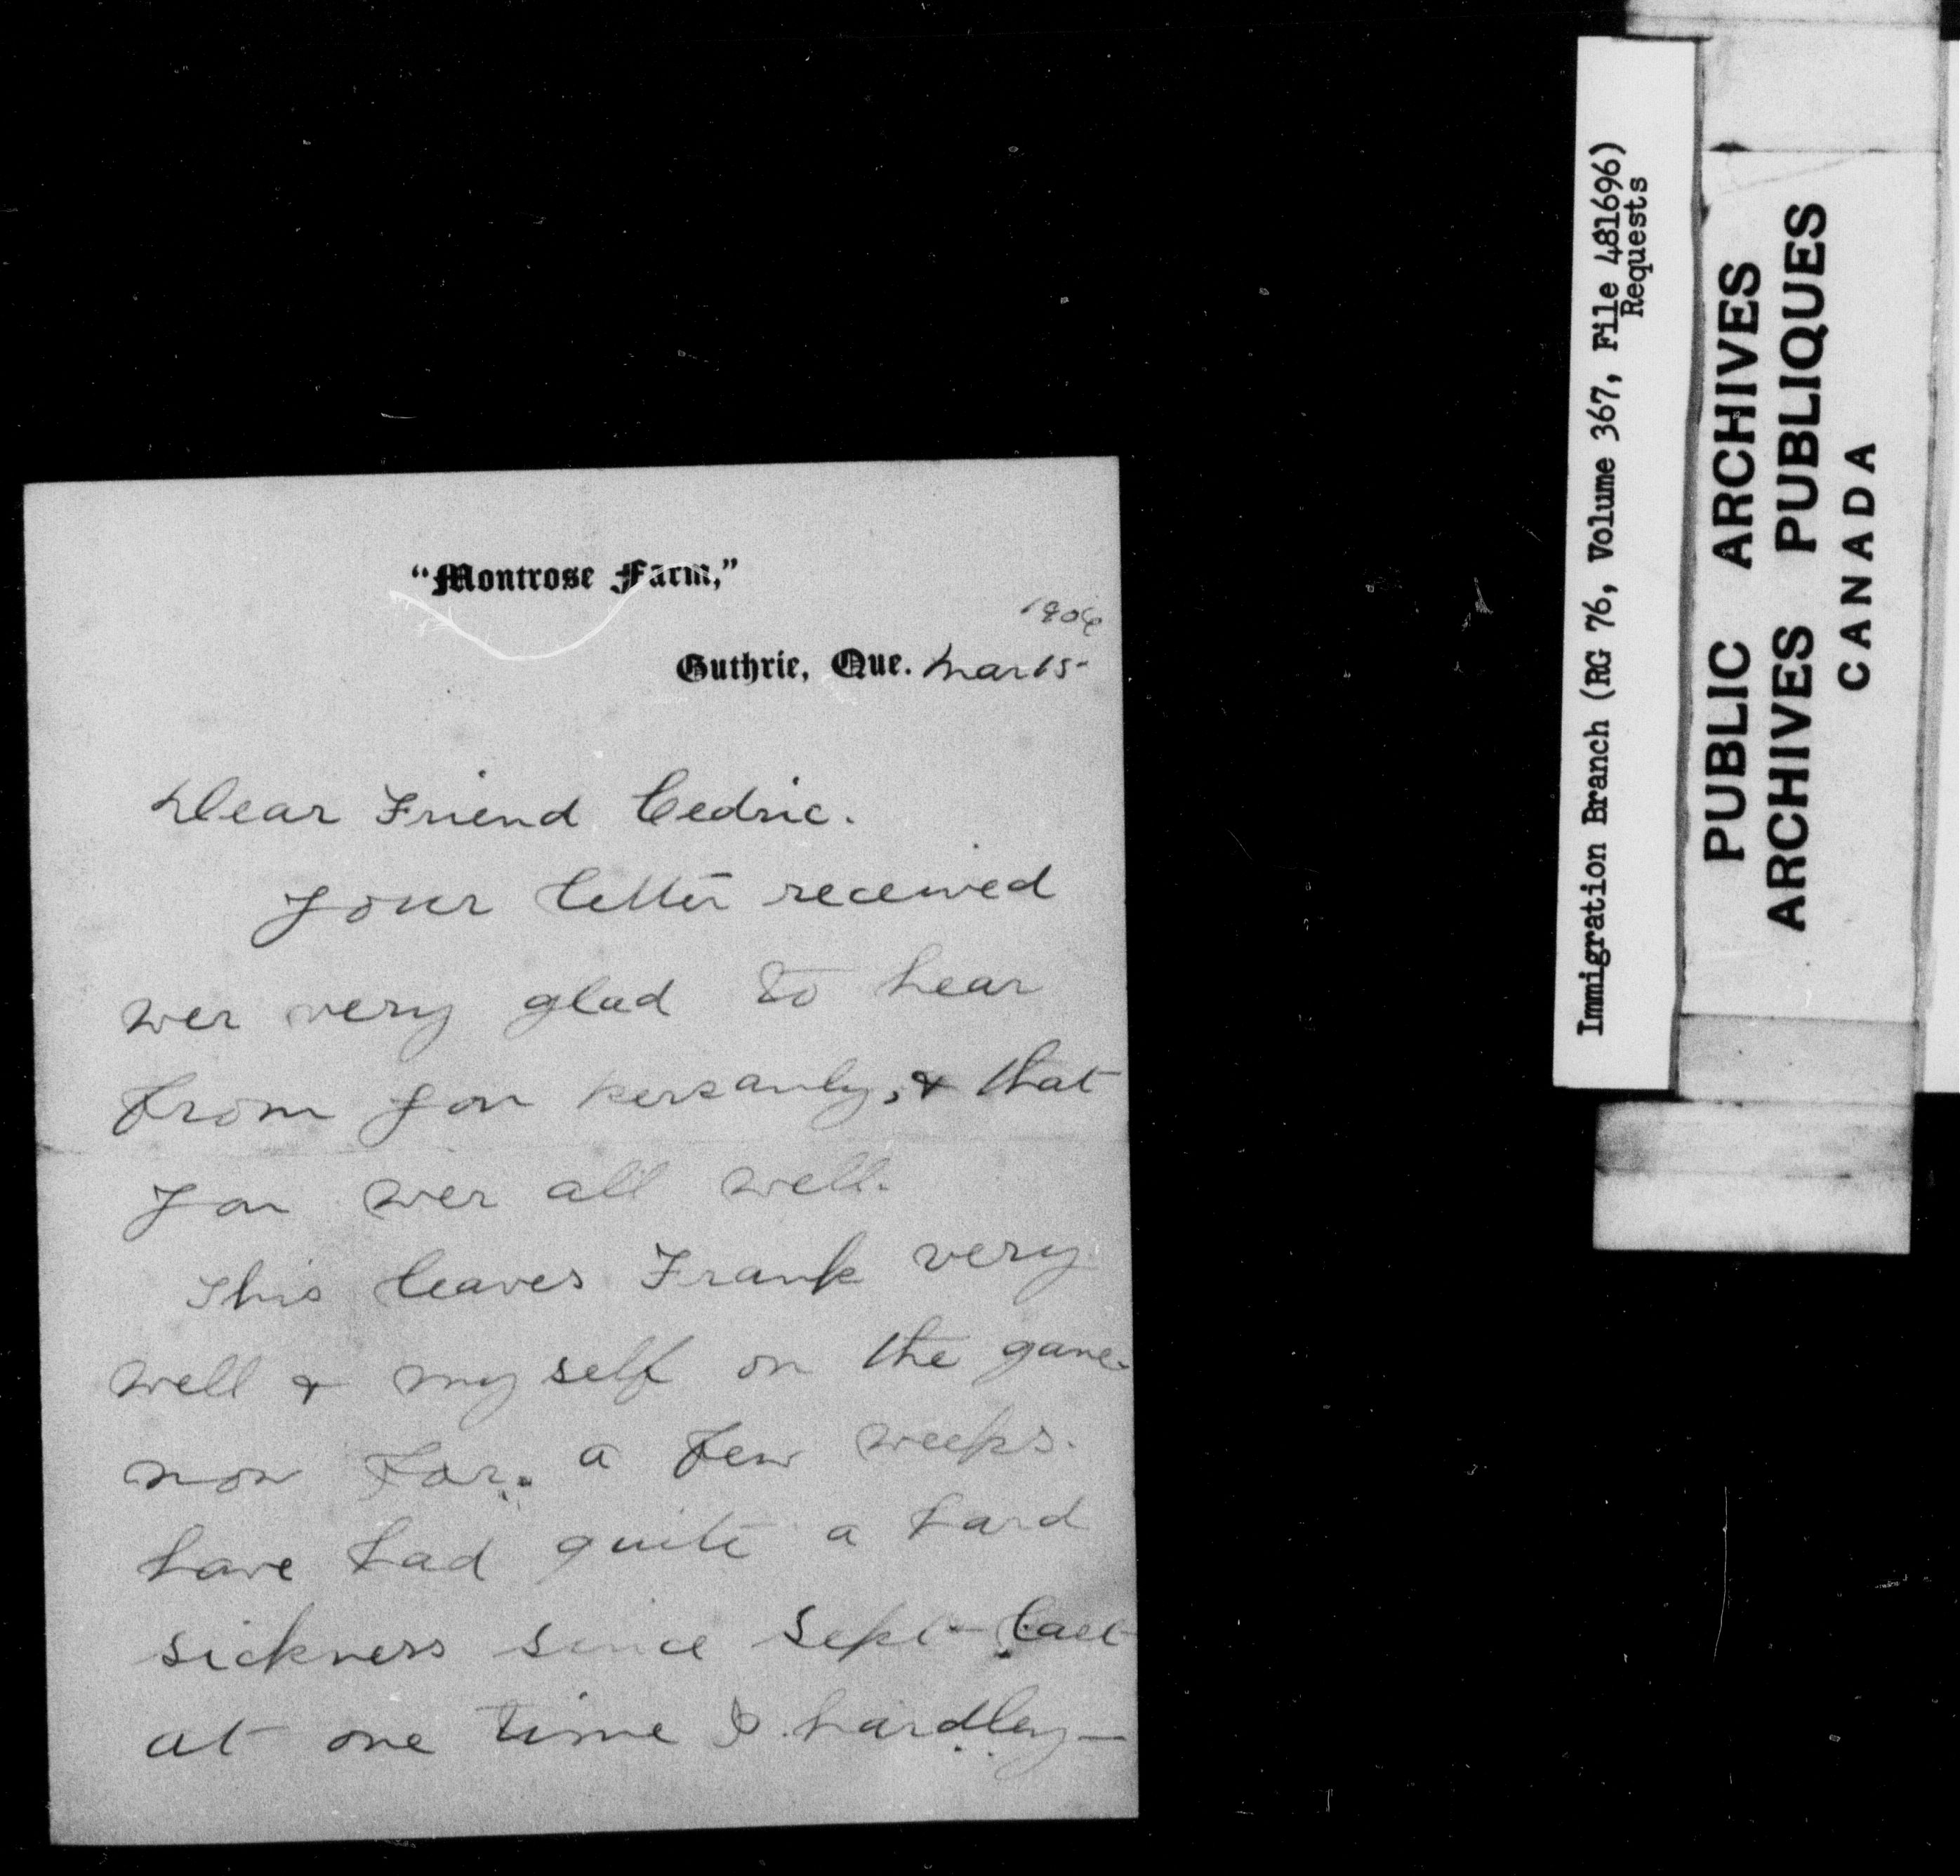 "Montrose Farm,"
1906
Guthrie, Que. Mar 15
Dear Friend Cedric.
Your letter received
wer very glad to hear
from you persanly, & that
you wer all well.
This leaves Frank very
well & my self on the gane
now for a few weeks.
have had quite a hard
sickness since Sept - last
at one time I hardley -
Immigration Branch (RG 76, Volume 367, File 481696)
Requests
PUBLIC ARCHIVES
ARCHIVES PUBLIQUES
CANADA